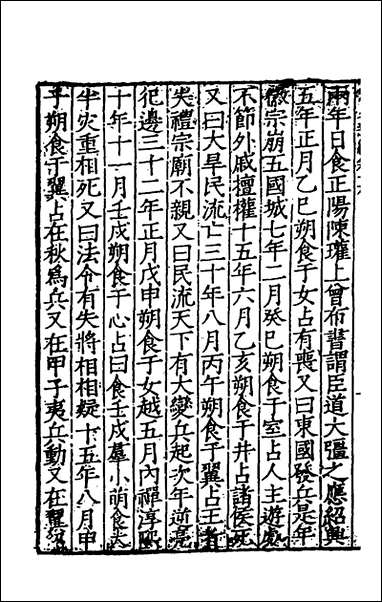 兩年日食正陽陳瓘上曾布書謂臣道大彊之應紹興
五年正月乙巳朔食于女占有喪又曰東國發兵是年
徽宗崩五國城七年二月癸巳朔食于室占人主遊處
不節外戚擅權十五年六月乙亥朔食于井占諸侯死
又曰大旱民流亡三十年八月丙午朔食于翼占王者
失禮宗廟不親又曰民流天下有大變兵起次年逆亮
犯邊三十二年正月戊申朔食于女越五月內禪淳熙
十年十一月壬戌朔食于心占曰食壬戌羣小萌食大
半灾重相死又曰法令有失將相相疑十五年八月甲
子朔食于翼占在秋爲兵又在甲子夷兵動又在翼